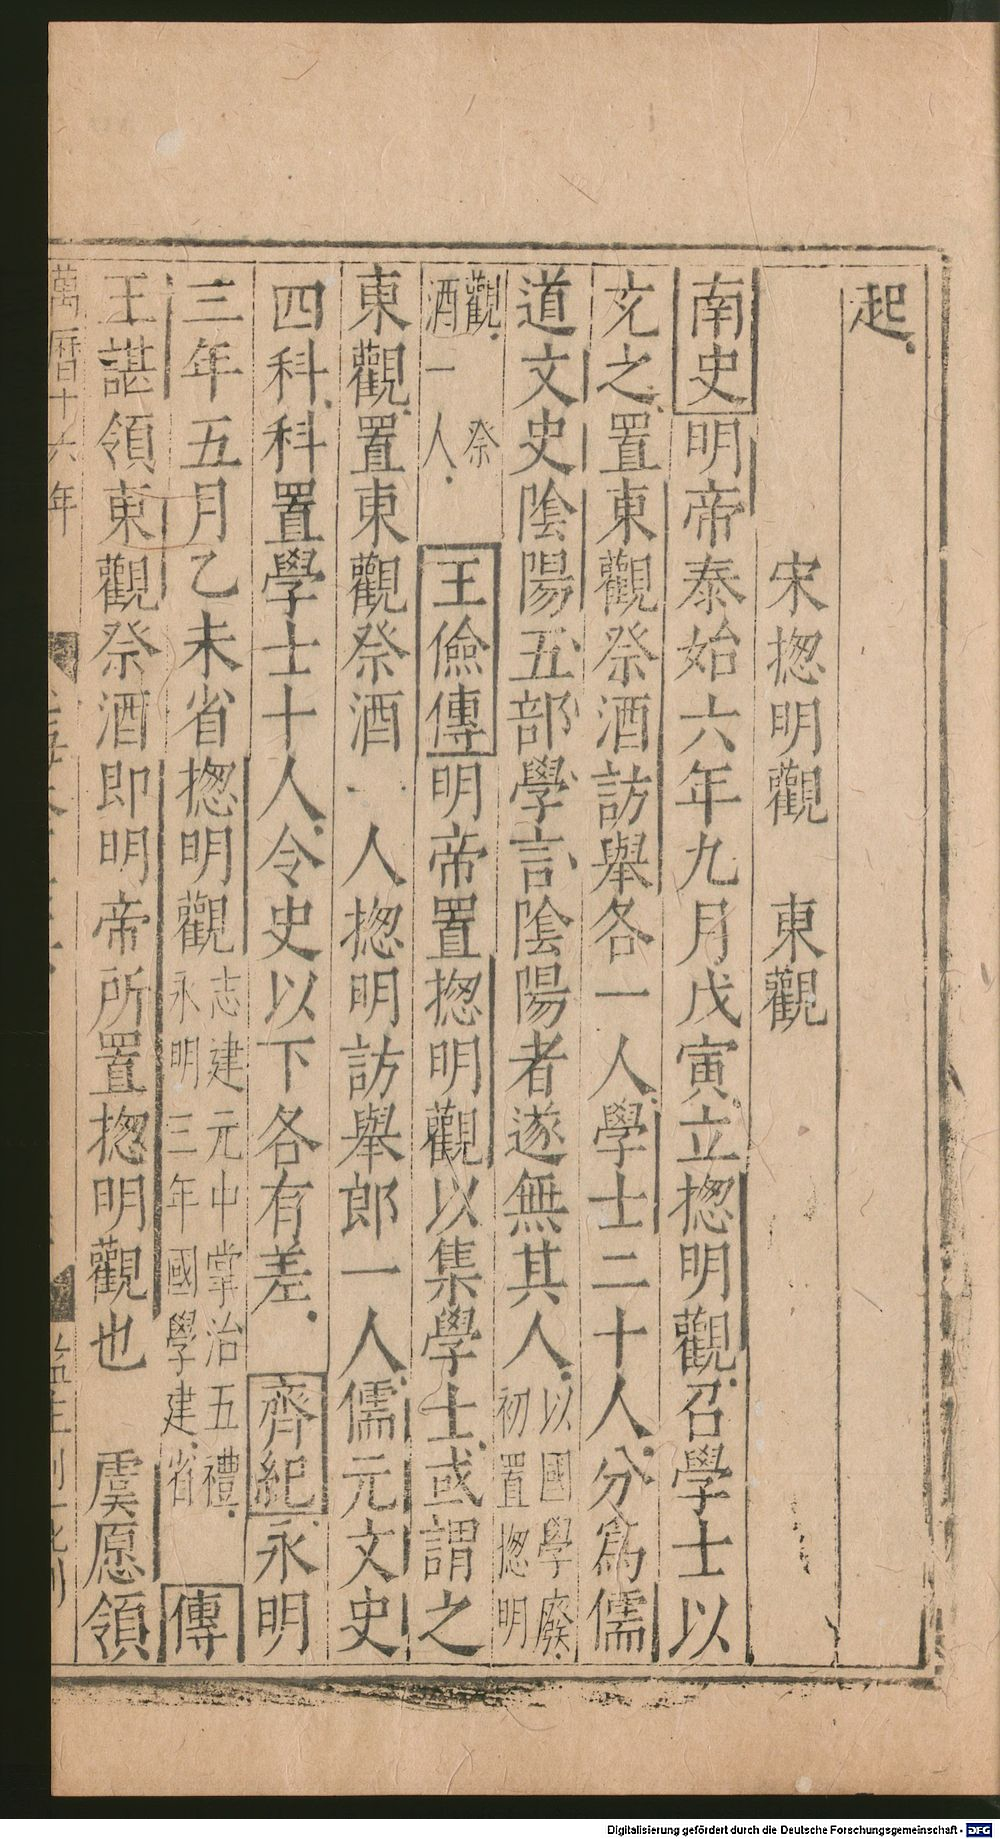 起
宋揔明觀　東觀
南史明帝泰始六年九月戊寅立揔明觀召學士以
充之置東觀祭酒訪舉各一人學士二十人分爲儒
道文史陰陽五部學言陰陽者遂無其人以國學廢初置揔明
觀祭酒一人王儉傳明帝置揔明觀以集學士或謂之
東觀置東觀祭酒一人揔明訪舉郎一人儒元文史
四科科置學士十人令史以下各有差齊紀永明
三年五月乙未省揔明觀志建元中掌治五禮永明三年國學建省傳
王諶領東觀祭酒即明帝所置揔明觀也　虞愿領
萬曆十六年
Digitalisierung gefördert durch die Deutsche Forschungsgemeinschaft - DFG